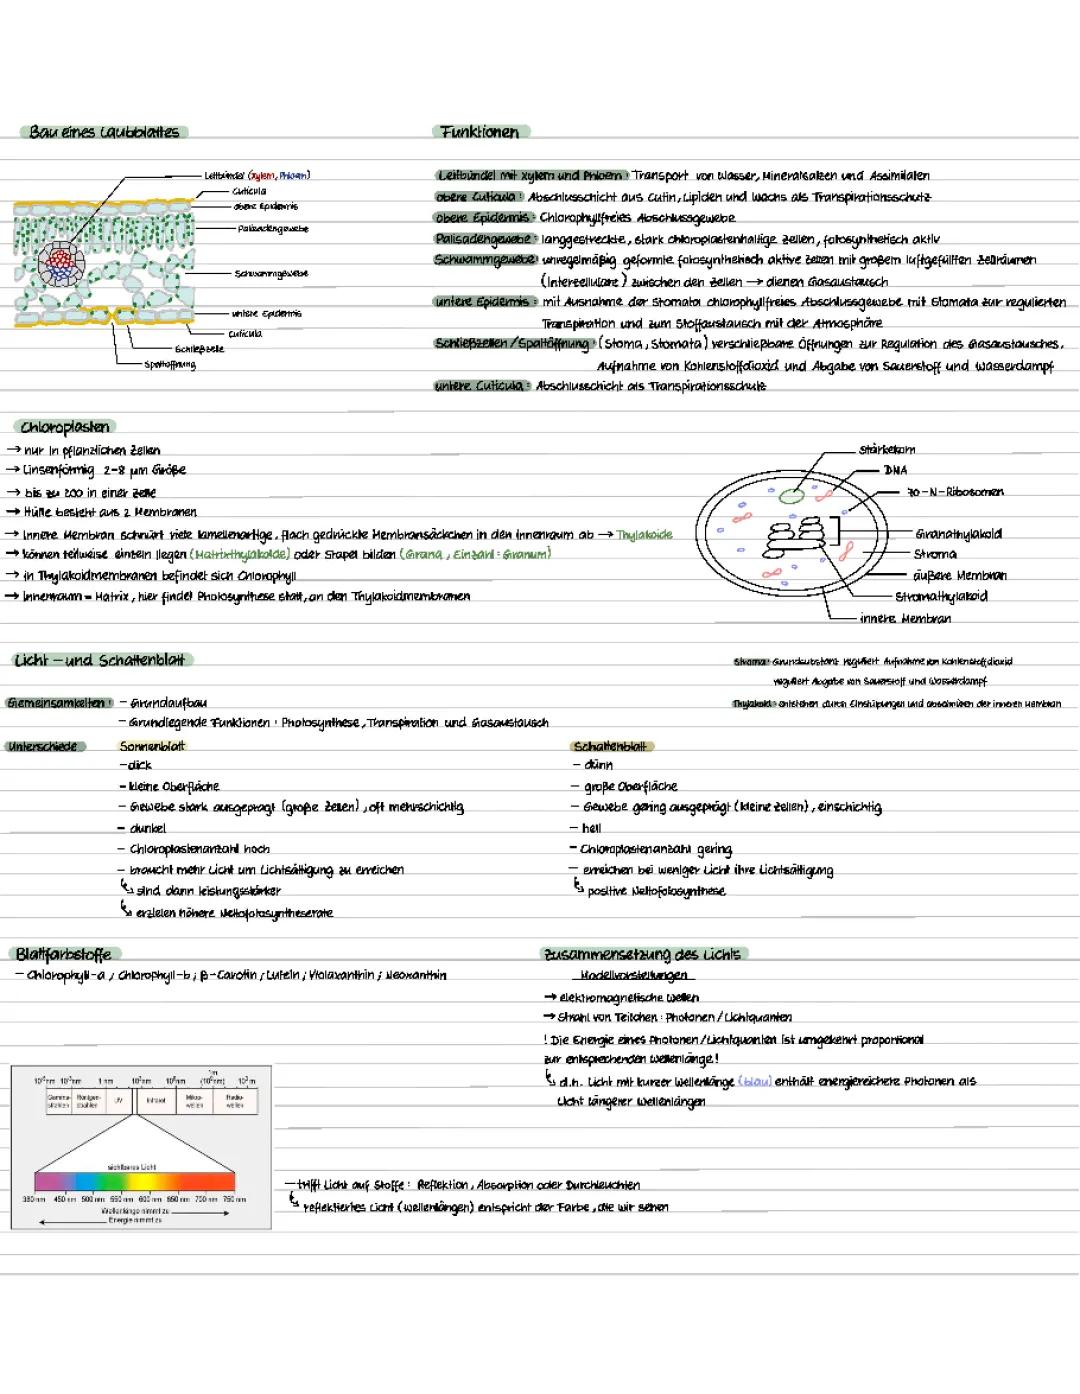 Bau eines Laubblattes
Leitbündel (Xylem, Phloem)
Cuticula
obere Epidermis
Palisadengewebe
Schwammgewebe
untere Epidermis
Cuticula
Schließzelle
Spaltöffnung
Funktionen
Leitbündel mit Xylem und Phloem: Transport von Wasser, Mineralsalzen und Assimilaten
obere Cuticula: Abschlusschicht aus Cutin, Lipiden und Wachs als Transpirationsschutz
obere Epidermis: Chlorophyllfreies Abschlussgewebe
Palisadengewebe: langgestreckte, stark chloroplastenhaltige Zellen, fotosynthetisch aktiv
Schwammgewebe: unregelmäßig geformte fotosynthetisch aktive Zellen mit großem luftgefüllten Zellräumen
(Interzellulare) zwischen den Zellen → dienen Gasaustausch
untere Epidermis: mit Ausnahme der Stomata chlorophyllfreies Abschlussgewebe mit Stomata zur regulierten
Transpiration und zum Stoffaustausch mit der Atmosphäre
Schließzellen/Spaltöffnung: (Stoma, Stomata) verschließbare Öffnungen zur Regulation des Gasaustausches,
Aufnahme von Kohlenstoffdioxid und Abgabe von Sauerstoff und Wasserdampf
untere Cuticula: Abschlusschicht als Transpirationsschutz
Chloroplasten
→ nur in pflanzlichen Zellen
→ Linsenförmig 2-8 µm Größe
→ bis zu 200 in einer Zelle
→ Hülle besteht aus 2 Membranen
→ Innere Membran schnürt viele lamellenartige, flach gedrückte Membransäckchen in den Innenraum ab → Thylakoide
→ können teilweise einzeln liegen (Matrixthylakoide) oder Stapel bilden (Grana, Einzahl: Granum)
→ in Thylakoidmembranen befindet sich Chlorophyll
→ Innenraum = Matrix, hier findet Photosynthese statt, an den Thylakoidmembranen
Stärkekorn
DNA
70-N-Ribosomen
Granathylakoid
Stroma
äußere Membran
Stromathylakoid
innere Membran
Stroma: Grundsubstanz reguliert Aufnahme von Kohlenstoffdioxid
reguliert Abgabe von Sauerstoff und Wasserdampf
Thylakoid: entstehen durch Einstülpungen und abschnüren der inneren Membran
Licht- und Schattenblatt
Gemeinsamkeiten: - Grundaufbau
- Grundlegende Funktionen: Photosynthese, Transpiration und Gasaustausch
Unterschiede
Sonnenblatt
- dick
- kleine Oberfläche
- Gewebe stark ausgeprägt (große Zellen), oft mehrschichtig
- dunkel
- Chloroplastenanzahl hoch
- braucht mehr Licht um Lichtsättigung zu erreichen
↳ sind dann leistungsstärker
↳ erzielen höhere Nettofotosyntheserate
Schattenblatt
- dünn
- große Oberfläche
- Gewebe gering ausgeprägt (kleine Zellen), einschichtig
- hell
- Chloroplastenanzahl gering
- erreichen bei weniger Licht ihre Lichtsättigung
↳ positive Nettofotosynthese
Blattfarbstoffe
- Chlorophyll-a, Chlorophyll-b; β-Carotin; Lutein; Violaxanthin; Neoxanthin
Zusammensetzung des Lichts
Modellvorstellungen
→ elektromagnetische Wellen
→ Strahl von Teilchen: Photonen/Lichtquanten
! Die Energie eines Photonen/Lichtquanten ist umgekehrt proportional
zur entsprechenden Wellenlänge!
↳ d.h. Licht mit kurzer Wellenlänge (blau) enthält energiereichere Photonen als
Licht längerer Wellenlängen
1 nm
1 m
Gamma-strahlen
Röntgen-strahlen
UV
Infrarot
Mikro-wellen
Radio-wellen
sichtbares Licht
380 nm 450 nm 500 nm 550 nm 600 nm 650 nm 700 nm 750 nm
Wellenlänge nimmt zu
Energie nimmt zu
- trifft Licht auf Stoffe: Reflektion, Absorption oder Durchleuchten
↳ reflektiertes Licht (Wellenlängen) entspricht der Farbe, die wir sehen